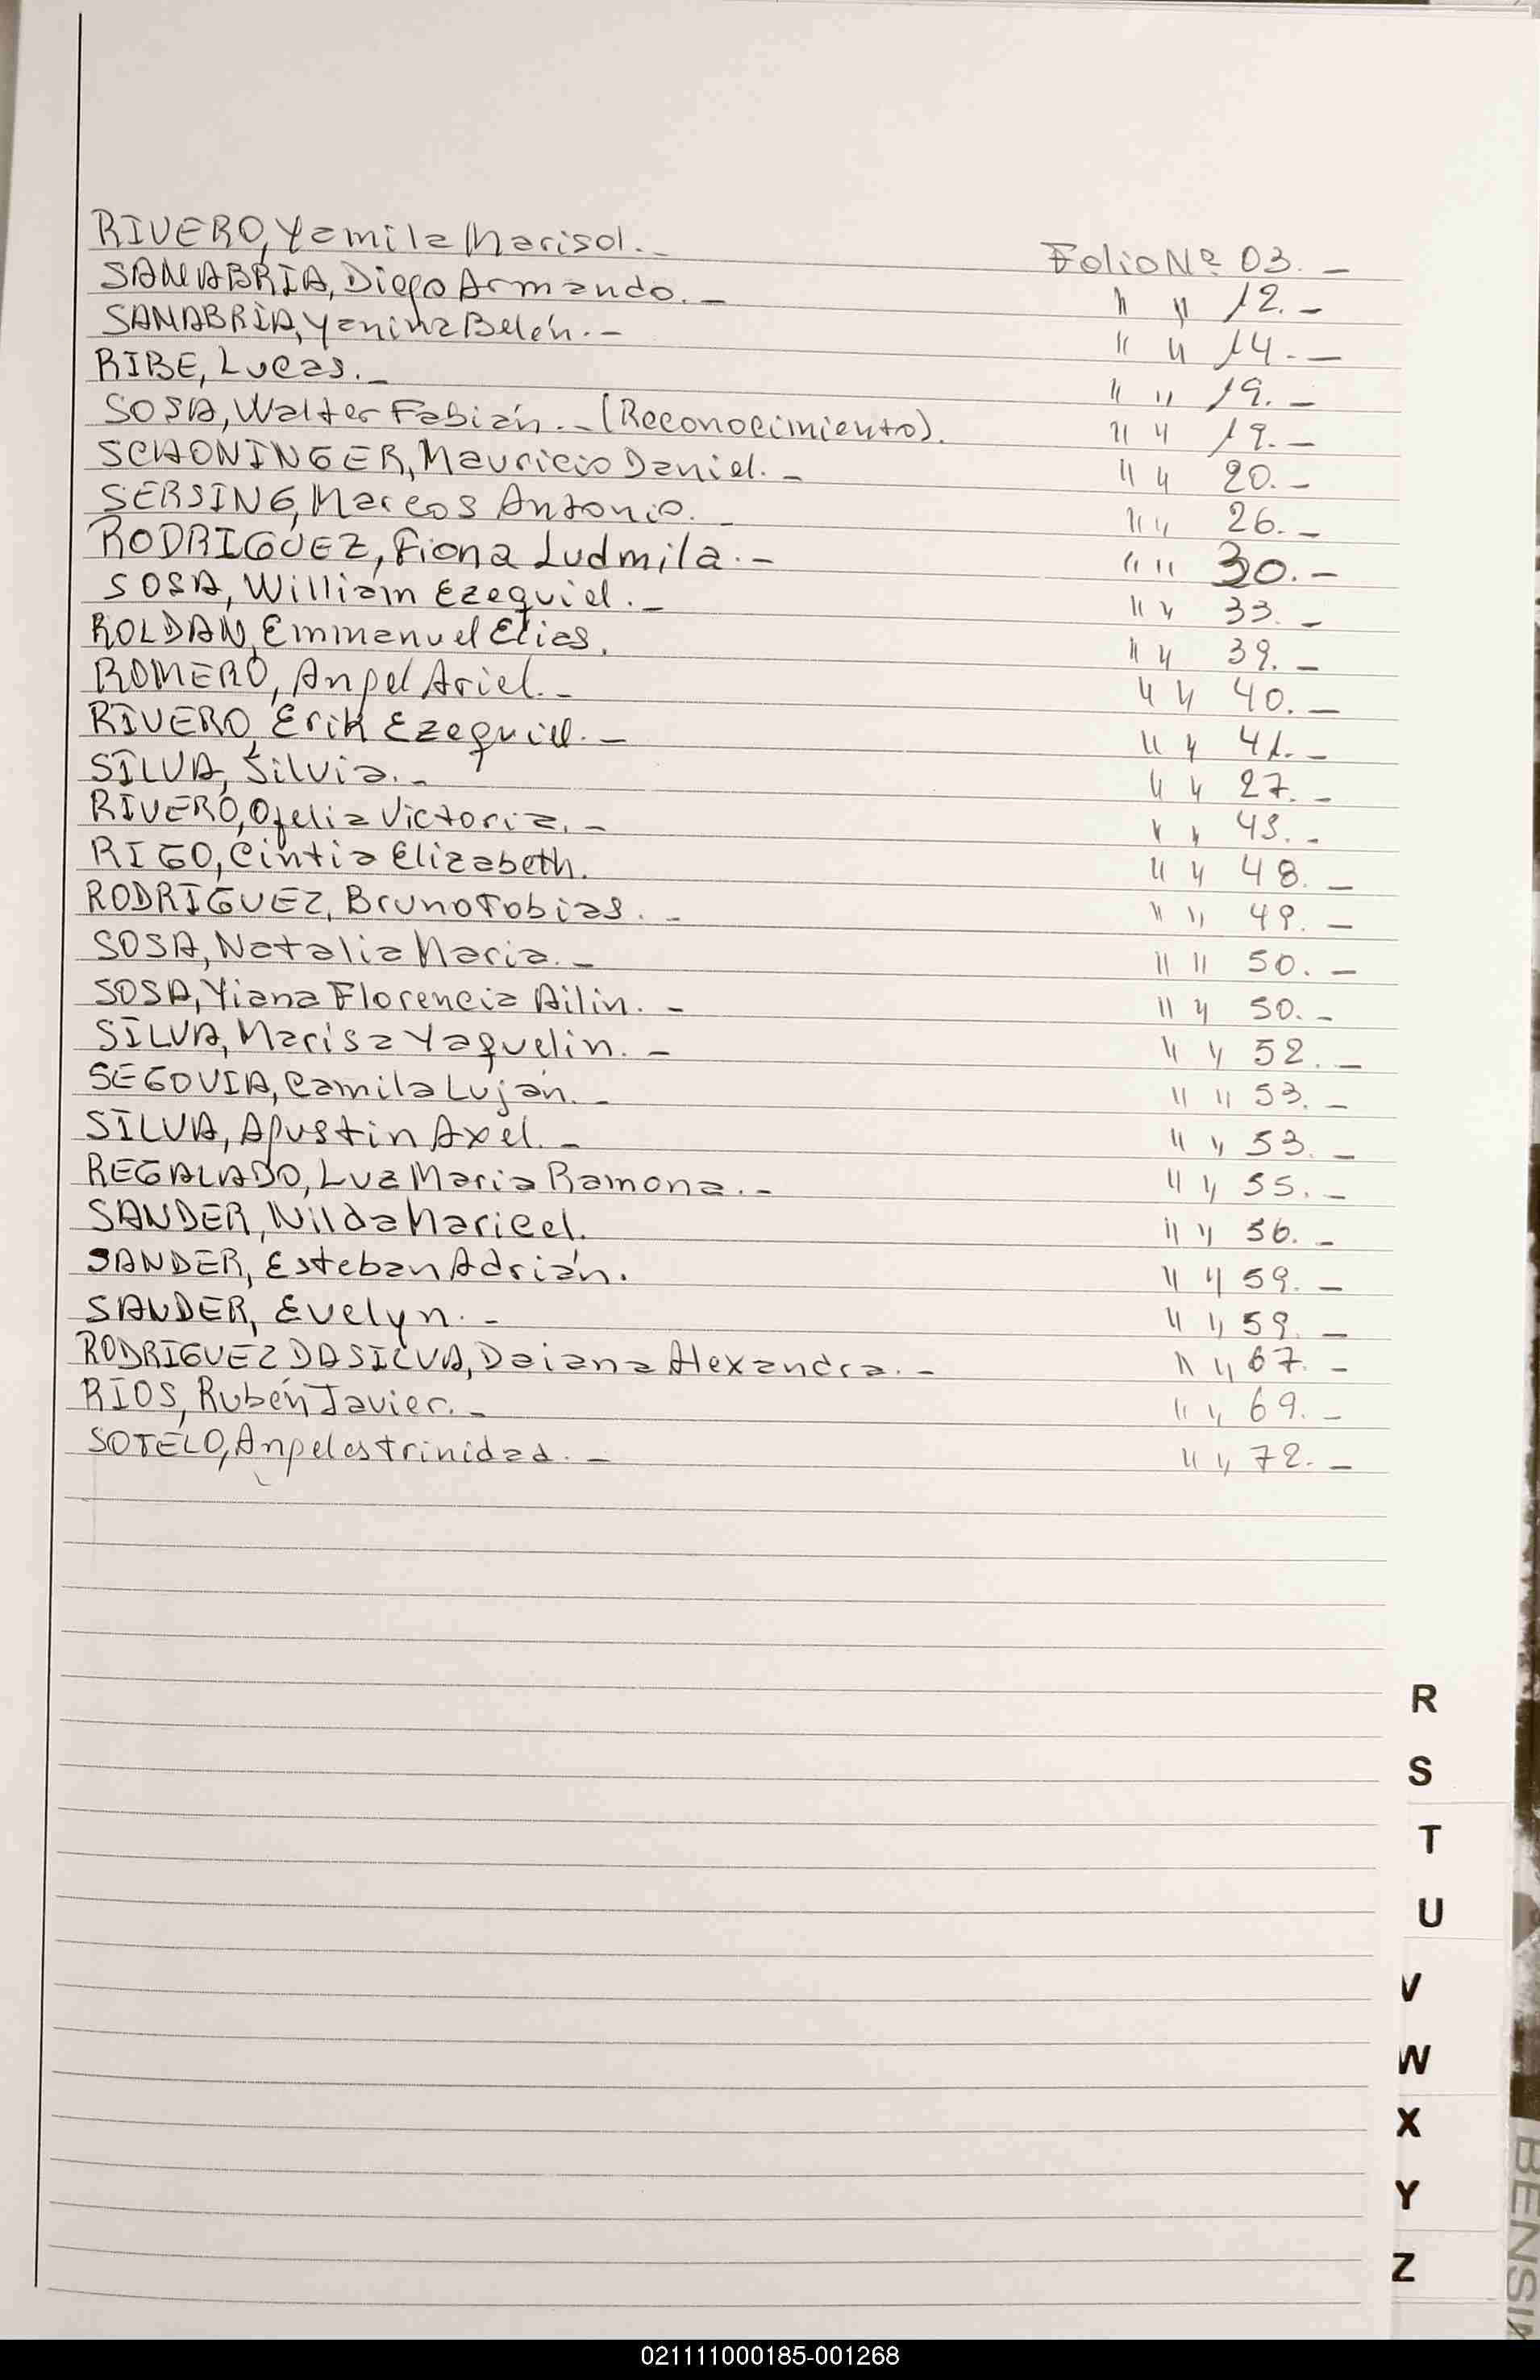 RIVERO, Yamila Marisol.- Folio Nº 03.-
SANABRIA, Diego Armando.- " " 12.-
SANABRIA, Yanina Belén.- " " 14.-
RIBE, Lucas.- " " 19.-
SOSA, Walter Fabián.- (Reconocimiento). " " 19.-
SCHONINGER, Mauricio Daniel.- " " 20.-
SERSING, Marcos Antonio.- " " 26.-
RODRIGUEZ, Fiona Ludmila.- " " 30.-
SOSA, William Ezequiel.- " " 33.-
ROLDAN, Emmanuel Elias. " " 39.-
ROMERO, Angel Ariel.- " " 40.-
RIVERO, Erik Ezequiel.- " " 41.-
SILVA, Silvia.- " " 27.-
RIVERO, Ofelia Victoria.- " " 43.-
RIGO, Cintia Elizabeth. " " 48.-
RODRIGUEZ, Bruno Tobias.- " " 49.-
SOSA, Natalia Maria.- " " 50.-
SOSA, Yiana Florencia Ailin.- " " 50.-
SILVA, Marisa Yaquelin.- " " 52.-
SEGOVIA, Camila Luján.- " " 53.-
SILVA, Agustin Axel.- " " 53.-
REGALADO, Luz Maria Ramona.- " " 55.-
SANDER, Nilda Maricel. " " 56.-
SANDER, Esteban Adrián. " " 59.-
SANDER, Evelyn.- " " 59.-
RODRIGUEZ DA SILVA, Daiana Alexandra.- " " 67.-
RIOS, Rubén Javier.- " " 69.-
SOTELO, Angeles trinidad.- " " 72.-
R
S
T
U
V
W
X
Y
Z
021111000185-001268